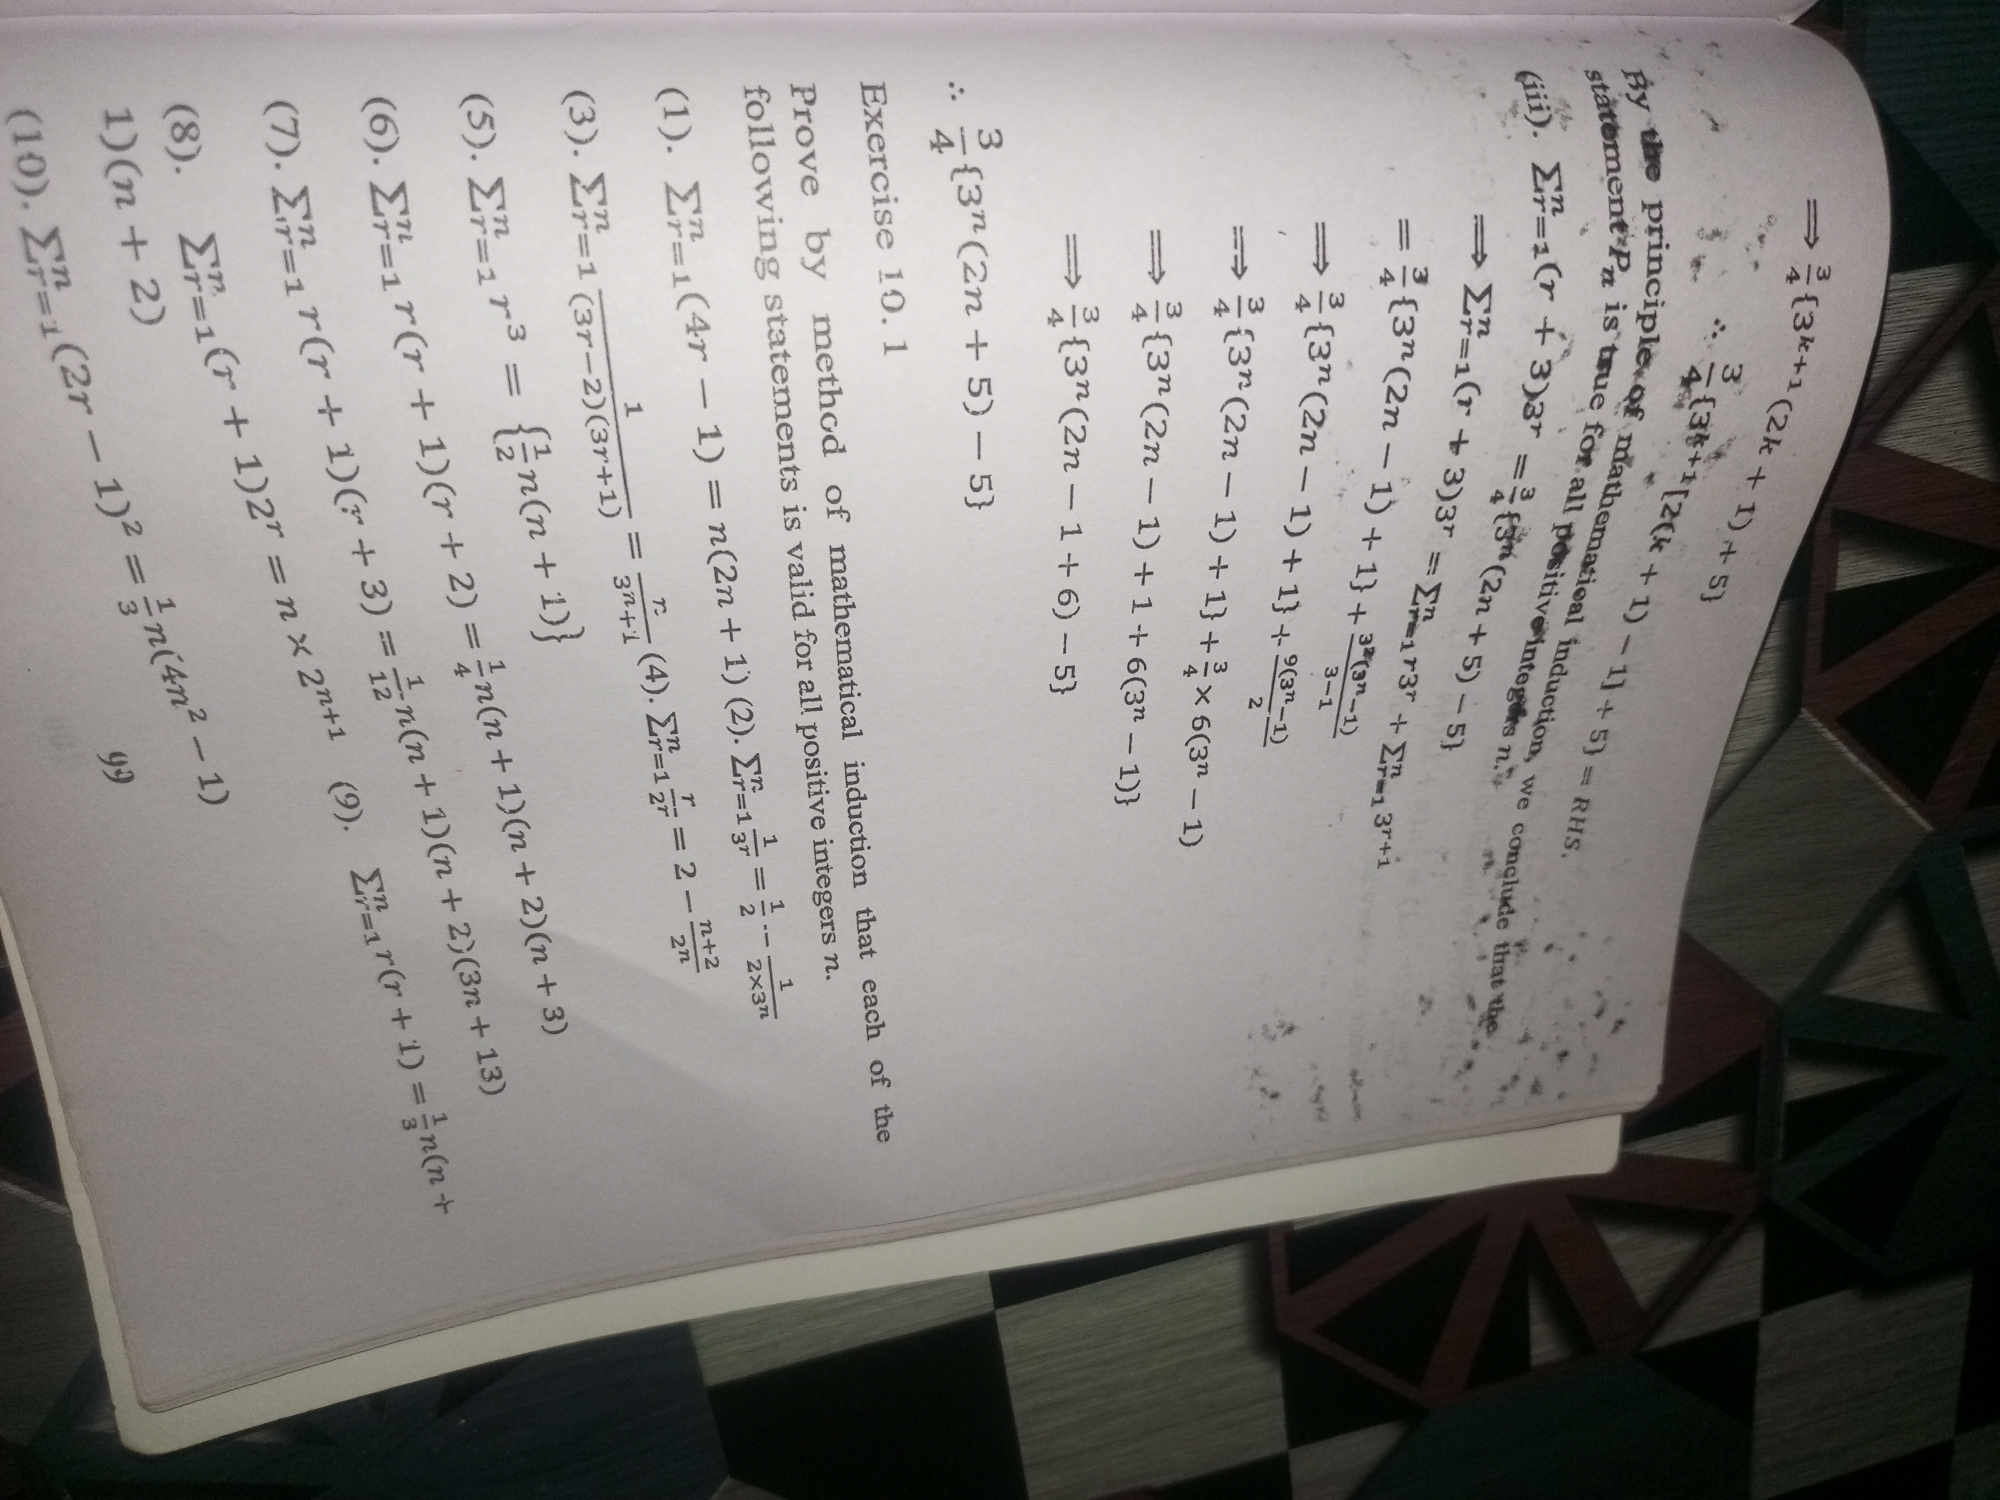 ⟹ 3/4{3^{k+1}(2k + 1) + 5}
∴ 3/4{3^{k+1}[2(k + 1) − 1] + 5} = RHS.
By the principle of mathematical induction, we conclude that the
statement P_n is true for all positive integers n.
(iii). ∑_{r=1}^{n}(r + 3)3^r = 3/4{3^n(2n + 5) − 5}
⟹ ∑_{r=1}^{n}(r + 3)3^r = ∑_{r=1}^{n} r3^r + ∑_{r=1}^{n} 3^{r+1}
= 3/4{3^n(2n − 1) + 1} + 3^2(3^n−1)/3−1
⟹ 3/4{3^n(2n − 1) + 1} + 9(3^n−1)/2
⟹ 3/4{3^n(2n − 1) + 1} + 3/4 × 6(3^n − 1)
⟹ 3/4{3^n(2n − 1) + 1 + 6(3^n − 1)}
⟹ 3/4{3^n(2n − 1 + 6) − 5}
∴ 3/4{3^n(2n + 5) − 5}
Exercise 10.1
Prove by method of mathematical induction that each of the
following statements is valid for all positive integers n.
(1). ∑_{r=1}^{n}(4r − 1) = n(2n + 1) (2). ∑_{r=1}^{n} 1/3^r = 1/2 − 1/2×3^n
(3). ∑_{r=1}^{n} 1/(3r−2)(3r+1) = n/3n+1 (4). ∑_{r=1}^{n} r/2^r = 2 − n+2/2^n
(5). ∑_{r=1}^{n} r^3 = {1/2 n(n + 1)}
(6). ∑_{r=1}^{n} r(r + 1)(r + 2) = 1/4 n(n + 1)(n + 2)(n + 3)
(7). ∑_{r=1}^{n} r(r + 1)(r + 3) = 1/12 n(n + 1)(n + 2)(3n + 13)
(8). ∑_{r=1}^{n}(r + 1)2^r = n × 2^{n+1} (9). ∑_{r=1}^{n} r(r + 1) = 1/3 n(n +
1)(n + 2)
(10). ∑_{r=1}^{n}(2r − 1)^2 = 1/3 n(4n^2 − 1)